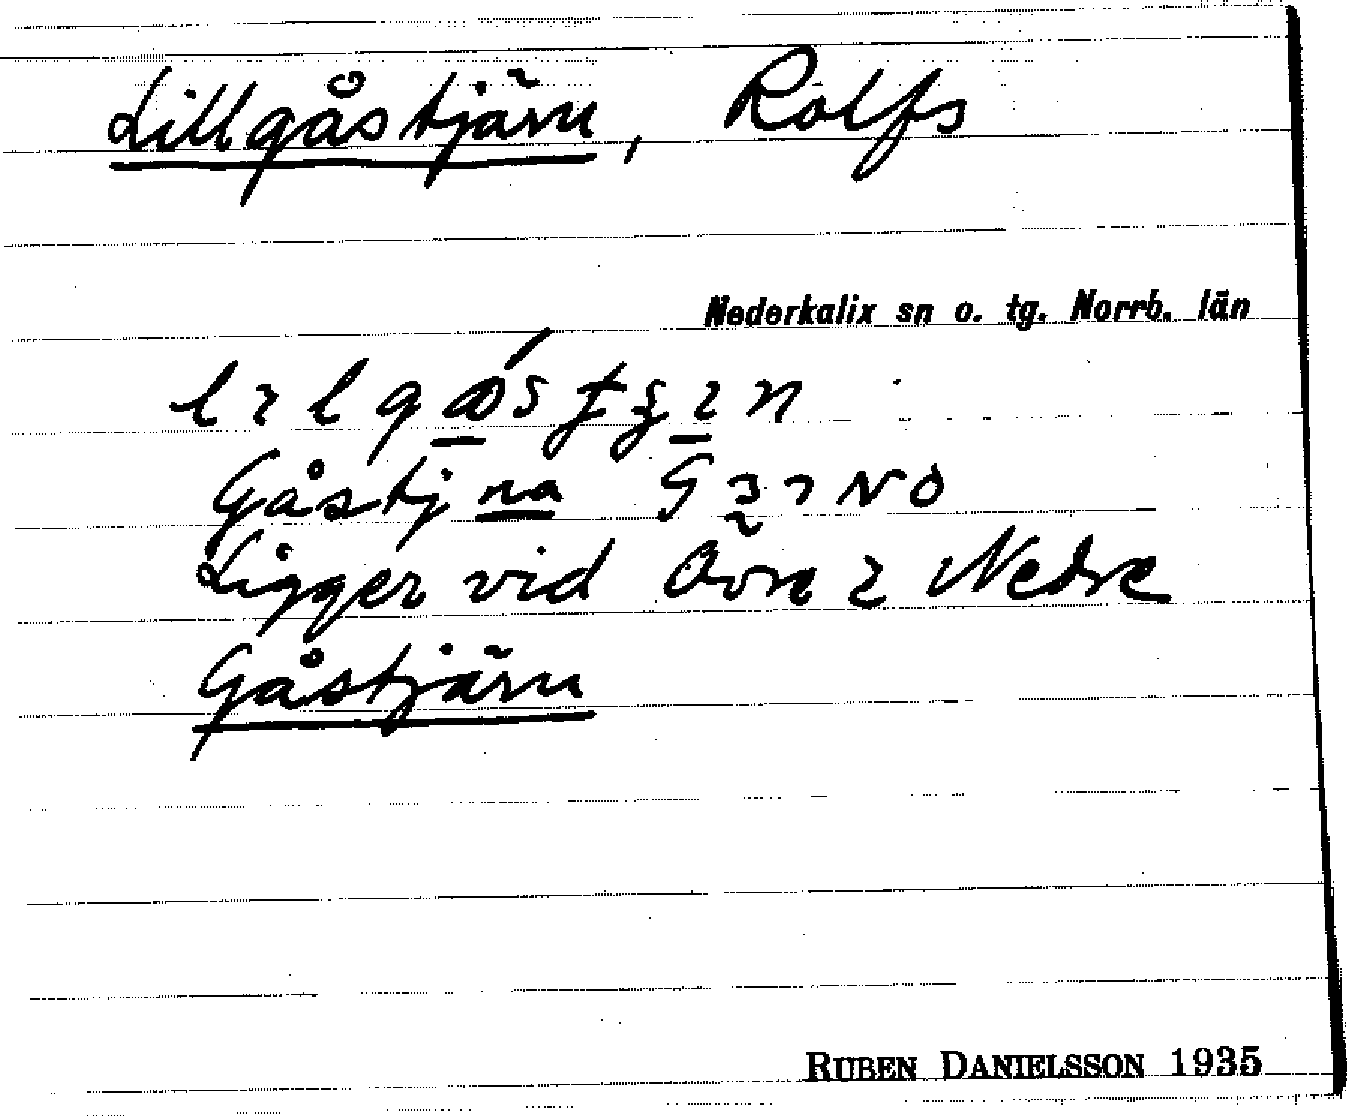 Lillgåstjärn, Rolfs
Nederkalix sn o. tg. Norrb. län
Gåstj na
Ligger vid Övre o Nedre
Gåstjärn
RUBEN DANIELSSON 1935